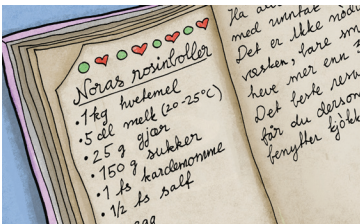 Noras rosinboller
• 1 kg hvetemel
• 5 dl melk (20-25°C)
• 25 g gjær
• 150 g sukker
• 1 ts kardemomme
• 1/2 ts salt
egg
Ha
med unntak
Det er ikke nød
væsken, bare sm
heve mer enn
Det beste res
får du dersom
benytter kjøkk